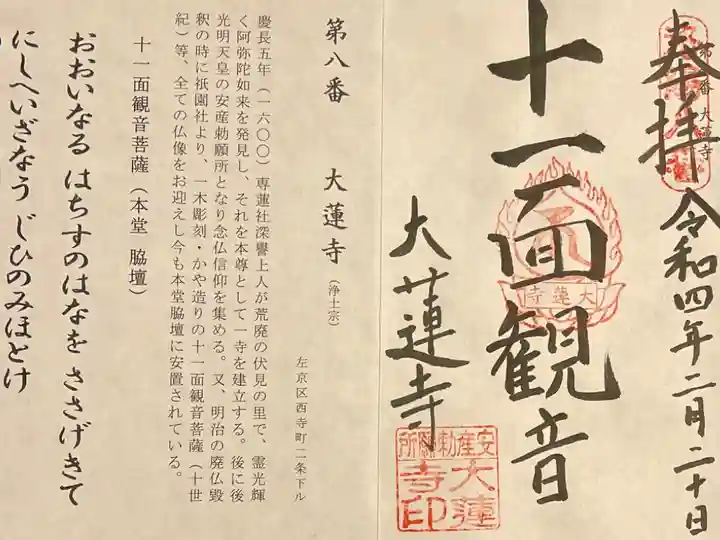 奉拝
第八番 大蓮寺
令和四年二月二十日
十一面観音
大蓮寺
大蓮寺
安産勅願所
大蓮寺印
第八番 大蓮寺(浄土宗)
左京区西寺町二条下ル
慶長五年(一六〇〇)専蓮社深誉上人が荒廃の伏見の里で、霊光輝
く阿弥陀如来を発見し、それを本尊として一寺を建立する。後に後
光明天皇の安産勅願所となり念仏信仰を集める。又、明治の廃仏毀
釈の時に祇園社より、一木彫刻・かや造りの十一面観音菩薩(十世
紀)等、全ての仏像をお迎えし今も本堂脇壇に安置されている。
十一面観音菩薩(本堂 脇壇)
おおいなる はちすのはなを ささげきて
にしへいざなう じひのみほとけ